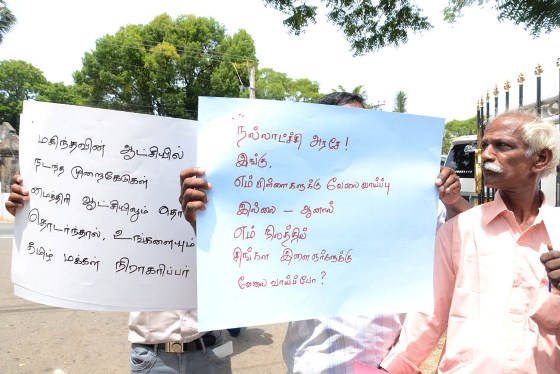 மகிந்தவின் ஆட்சியில்
நடந்த முறைகேடுகள்
மைத்திரி ஆட்சியிலும் தொ
தொடர்ந்தால், உங்களையும்
தமிழ் மக்கள் நிராகரிப்பர்
"நல்லாட்சி அரசே!
இங்கு,
எம் பிள்ளைகளுக்கு வேலை வாய்ப்பு
இல்லை - ஆனால்
எம் நிலத்தில்
சிங்கள இளைஞர்களுக்கு
வேலை வாய்ப்போ?